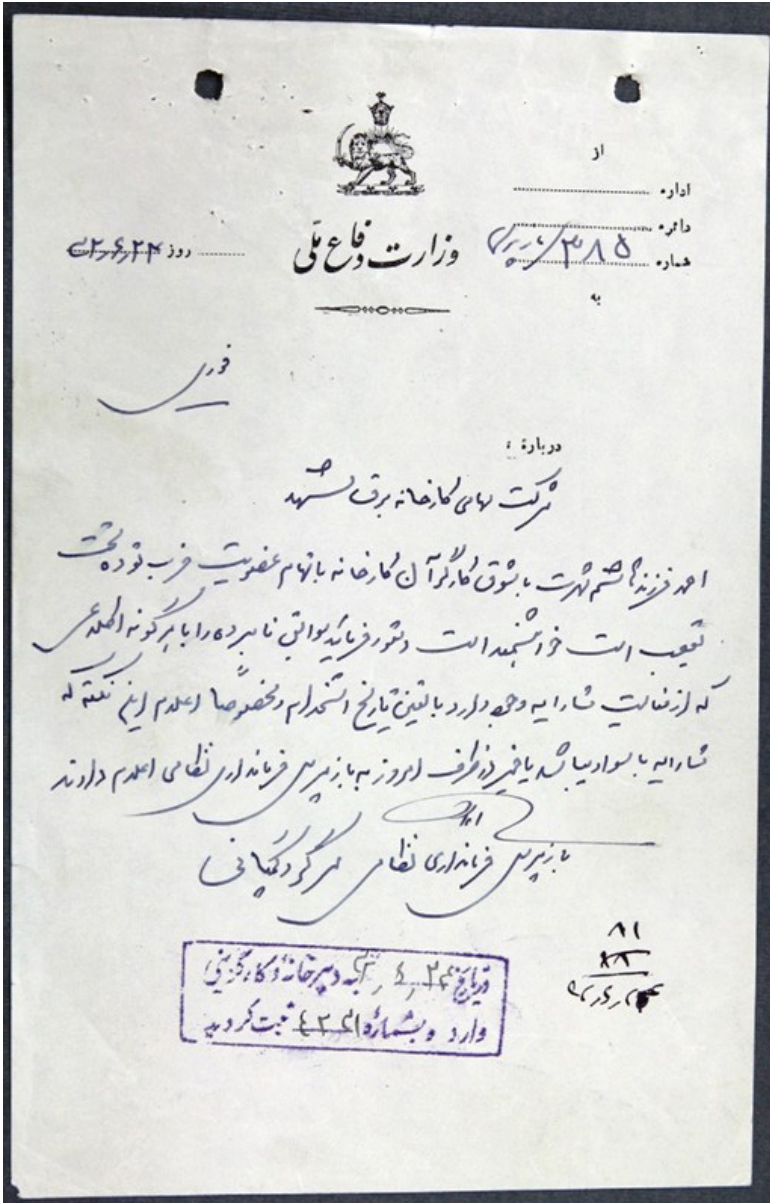 از
اداره
دائره
شماره ۳۸۵
به
وزارت دفاع ملی
روز
فوری
درباره :
شرکت سهامی کارخانه برق مشهد
احمد فرزند هاشم شهرت باشوق کارگر آن کارخانه باتهام عضویت حزب توده تحت
تعقیب است خواهشمند است دستور فرمائید سوابق نامبرده را با هرگونه اطلاعی
که از فعالیت مشارالیه وجود دارد با تعیین تاریخ استخدام و مخصوصاً اعلام این نکته که
مشارالیه با سواد میباشد یا خیر در ظرف امروز به بازپرسی فرمانداری نظامی اعلام دارند
بازپرس فرمانداری نظامی سرگرد
بتاریخ به دبیرخانه و کارگزینی
وارد و بشماره ثبت گردید
۸۱
۸۸